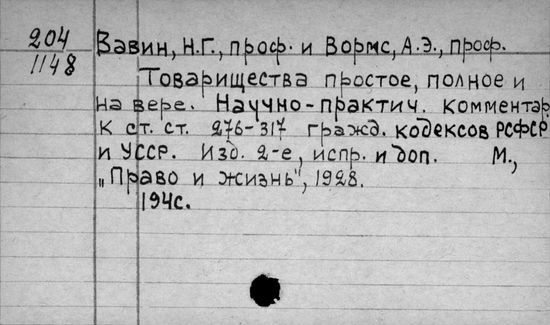 204 Вавин, Н.Г., проф. и Вормс, А.Э., проф.
1148
Товарищества простое, полное и
на вере. Научно-практич. комментар.
к ст. ст. 276-317 гражд. кодексов РСФСР
и УССР. Изд. 2-е, испр. и доп. М.,
„Право и жизнь", 1928.
194с.